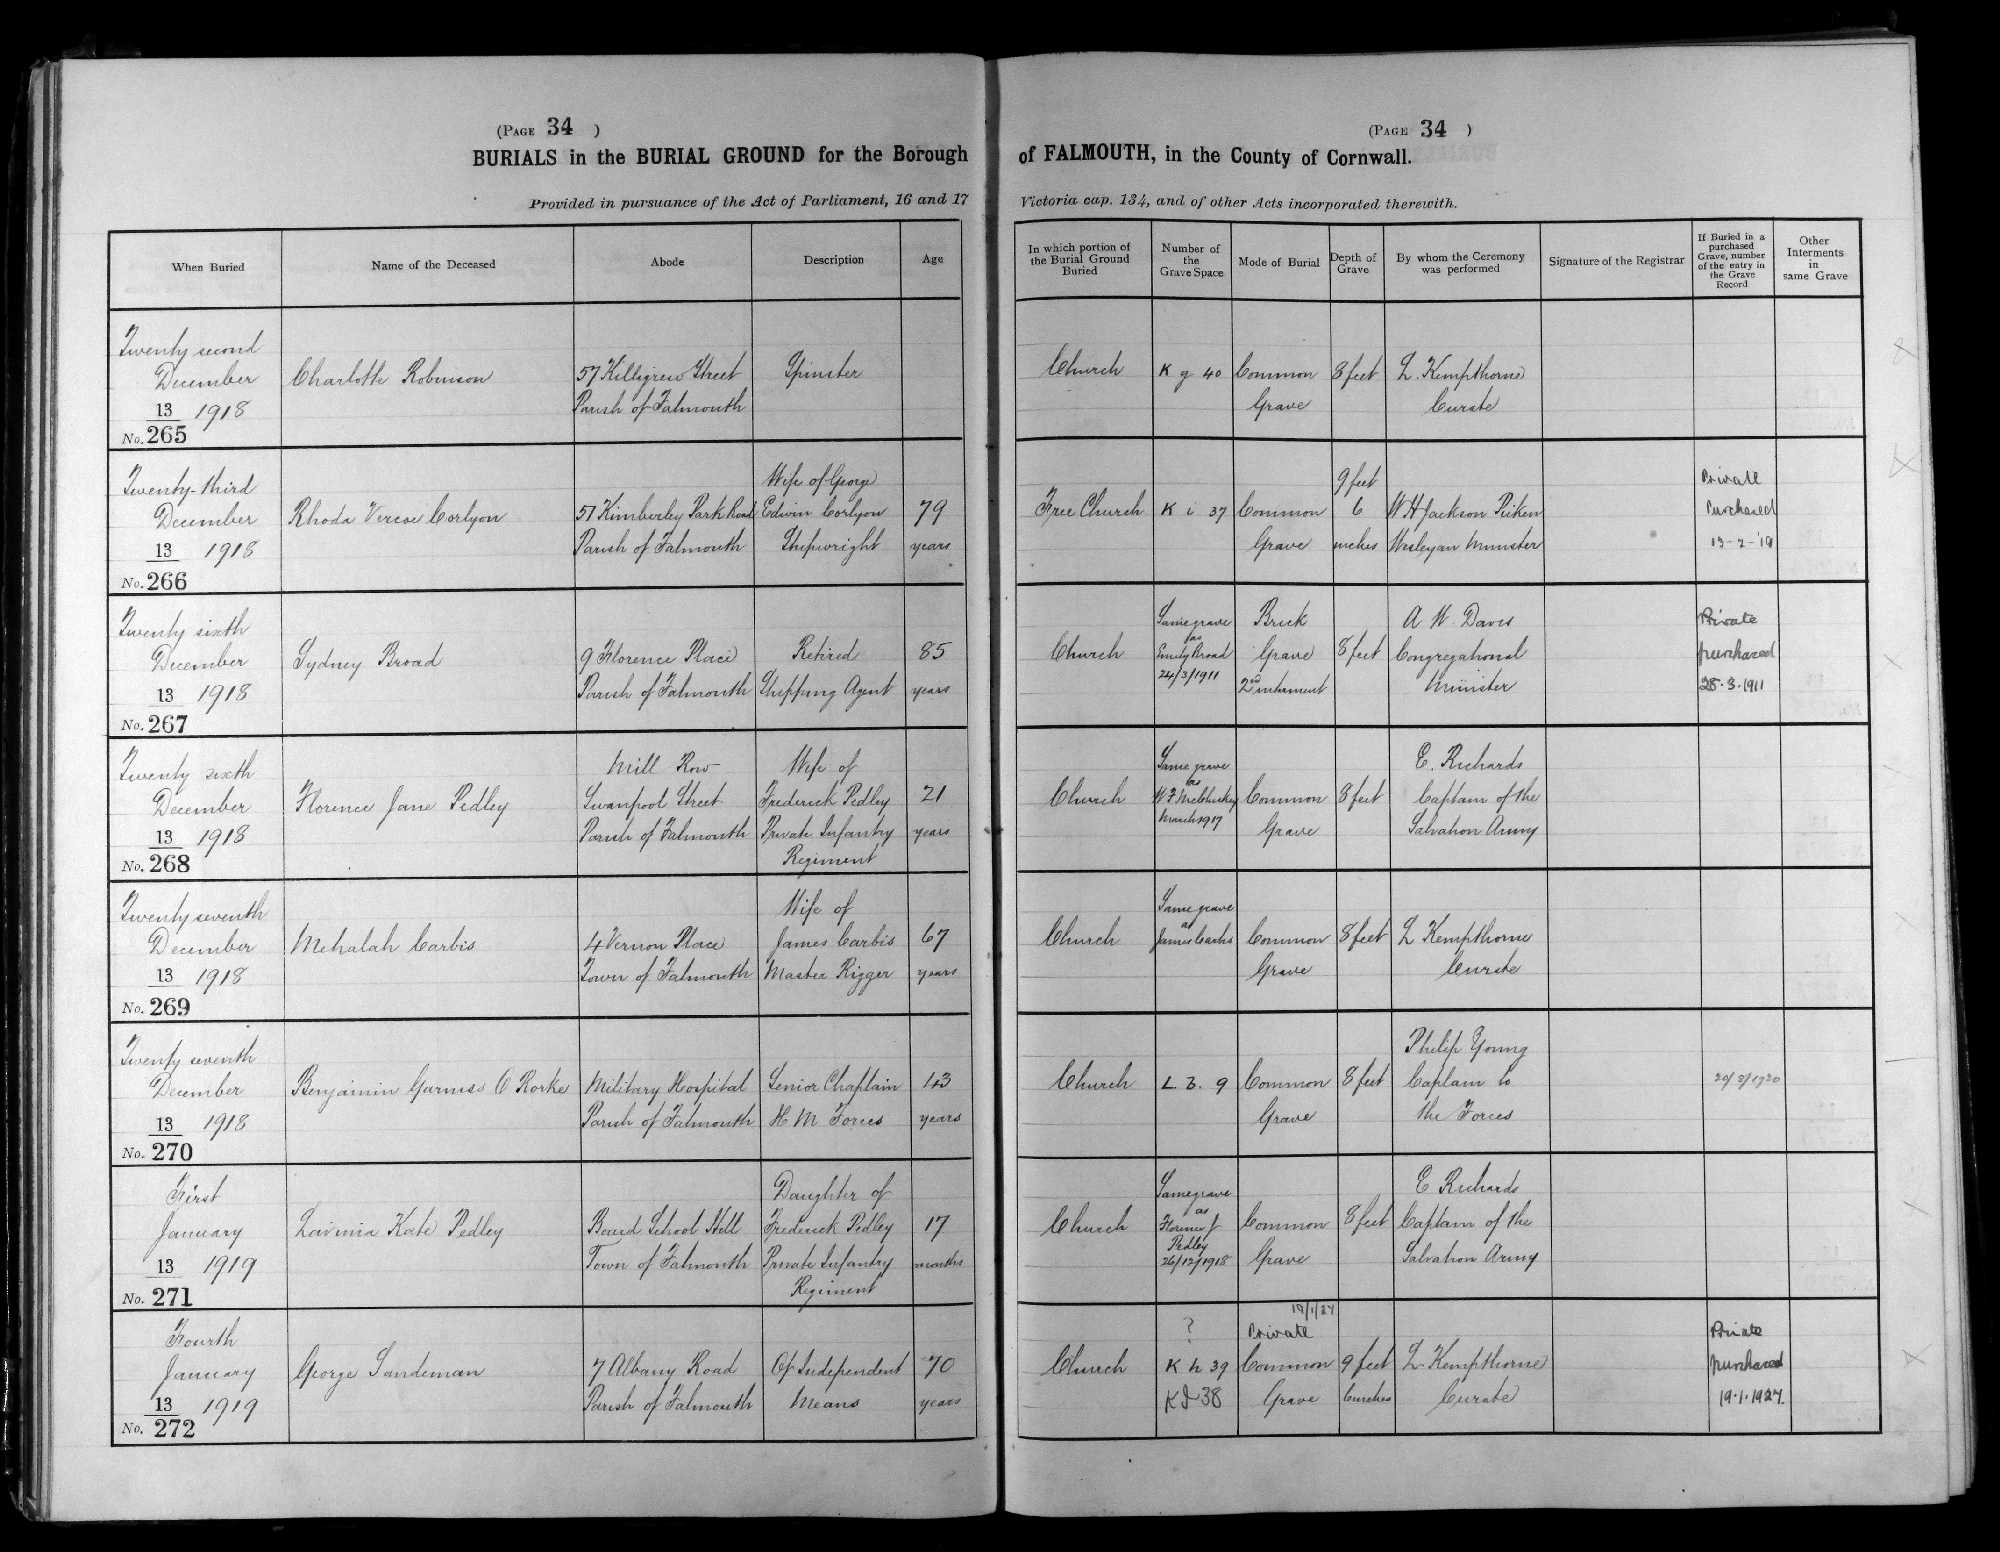 (PAGE 34 )
BURIALS in the BURIAL GROUND for the Borough
Provided in pursuance of the Act of Parliament, 16 and 17
When Buried
Name of the Deceased
Abode
Description
Age
Twenty second
December
13 1918
No. 265
Charlotte Robinson
57 Killigrew Street
Parish of Falmouth
Spinster
Twenty-third
December
13 1918
No. 266
Rhoda Vercoe Corlyon
57 Kimberley Park Road
Parish of Falmouth
Wife of George
Edwin Corlyon
Shipwright
79
years
Twenty sixth
December
13 1918
No. 267
Sydney Broad
9 Florence Place
Parish of Falmouth
Retired
Shipping Agent
85
years
Twenty sixth
December
13 1918
No. 268
Florence Jane Pedley
Mill Row
Swanpool Street
Parish of Falmouth
Wife of
Frederick Pedley
Private Infantry
Regiment
21
years
Twenty seventh
December
13 1918
No. 269
Mehalah Carbis
4 Vernon Place
Town of Falmouth
Wife of
James Carbis
Master Rigger
67
years
Twenty seventh
December
13 1918
No. 270
Benjamin Garniss O Rorke
Military Hospital
Parish of Falmouth
Senior Chaplain
H M Forces
43
years
First
January
13 1919
No. 271
Lavinia Kate Pedley
Board School Hill
Town of Falmouth
Daughter of
Frederick Pedley
Private Infantry
Regiment
17
months
Fourth
January
13 1919
No. 272
George Sandeman
7 Albany Road
Parish of Falmouth
Of Independent
Means
70
years
(PAGE 34 )
of FALMOUTH, in the County of Cornwall.
Victoria cap. 134, and of other Acts incorporated therewith.
In which portion of
the Burial Ground
Buried
Number of
the
Grave Space
Mode of Burial
Depth of
Grave
By whom the Ceremony
was performed
Signature of the Registrar
If Buried in a
purchased
Grave, number
of the entry in
the Grave
Record
Other
Interments
in
same Grave
Church
K g 40
Common
Grave
8 feet
L. Kempthorne
Curate
Free Church
K i 37
Common
Grave
9 feet
6
inches
W H Jackson Picken
Wesleyan Minister
Private
Purchased
Church
Same grave
as
Emily Broad
24/3/1911
Brick
Grave
2nd interment
8 feet
A W Davis
Congregational
Minister
Private
purchased
28.3.1911
Church
Same grave
as
March 1917
Common
Grave
8 feet
E. Richards
Captain of the
Salvation Army
Church
Same grave
as
James Carbis
Common
Grave
8 feet
L Kempthorne
Curate
Church
L 3. 9
Common
Grave
8 feet
Philip Young
Captain to
the Forces
Church
Same grave
as
Florence J
Pedley
26/12/1918
Common
Grave
8 feet
E Richards
Captain of the
Salvation Army
Church
?
K h 39
19/1/27
Private
Common
Grave
9 feet
L Kempthorne
Curate
Private
purchased
19.1.1927.